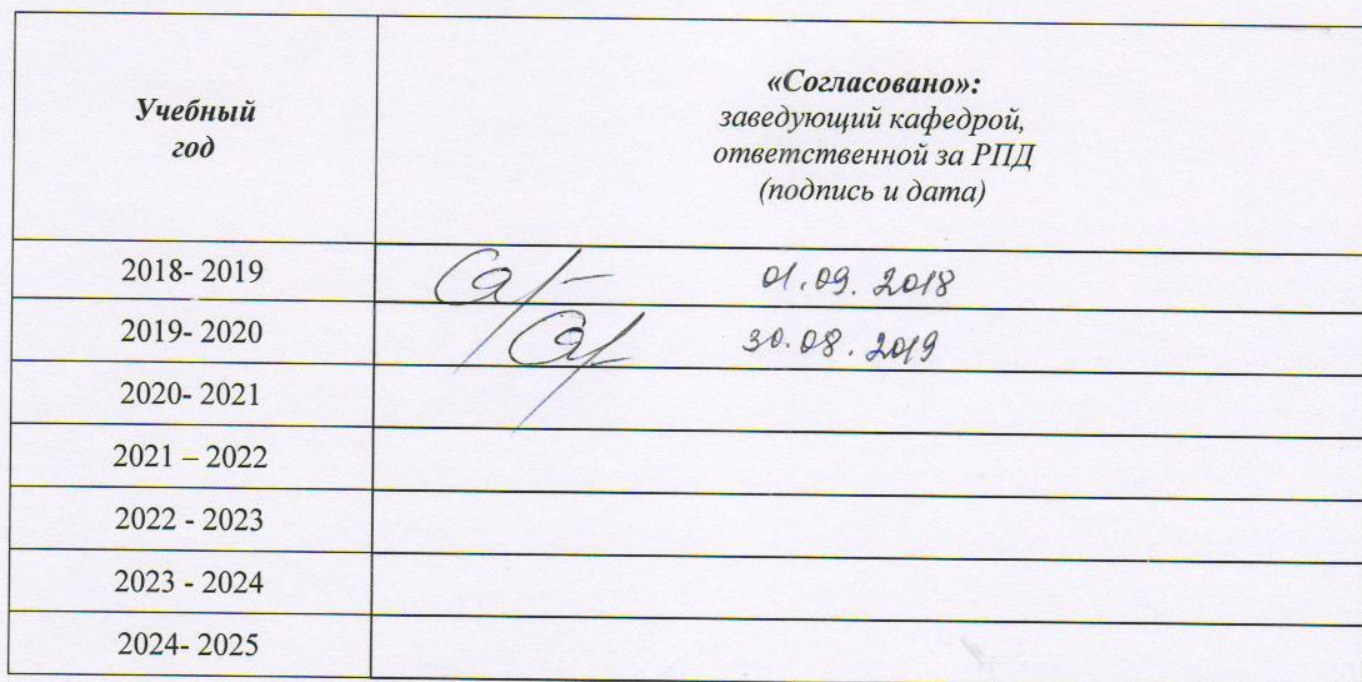 Учебный
год
«Согласовано»:
заведующий кафедрой,
ответственной за РПД
(подпись и дата)
2018- 2019 01.09.2018
2019- 2020 30.08.2019
2020- 2021
2021 – 2022
2022 - 2023
2023 - 2024
2024- 2025